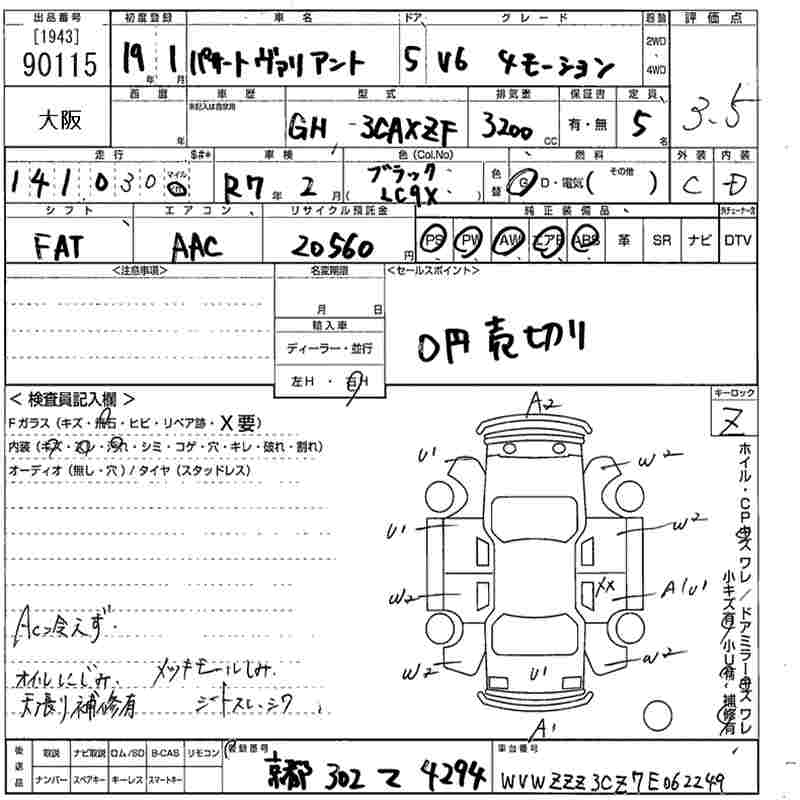 出品番号 初度登録 車名 ドア グレード 駆動 評価点
[1943]
90115 19年 1月 パサートヴァリアント 5 V6 4モーション 2WD・4WD 3.5
大阪 西暦 年 車歴 未記入は自家用 型式 GH -3CAXZF 排気量 3200cc 保証書 有・無 定員 5名
走行 $#* 車検 色(Col,No) 燃料 外装 内装
141,030 マイル R7年2月 (ブラック LC9X) 色替 G・D・電気( その他 ) C D
シフト エアコン リサイクル預託金 純正装備品
FAT AAC 20560円 PS PW AW エアB ABS 革 SR ナビ DTV
<注意事項> 名変期限 <セールスポイント>
月 日
輸入車 0円売切り
ディーラー・並行
左H・右H
キーロック
Z
< 検査員記入欄 >
Fガラス (キズ・飛石・ヒビ・リペア跡・X要)
内装 (キズ・スレ・汚れ・シミ・コゲ・穴・キレ・破れ・割れ)
オーディオ (無し・穴) / タイヤ (スタッドレス)
A2
U1 W2
U1 W2
W2 XX A1U1
W2 U1 W2
A1
ホイル・CPキズワレ/ドアミラーキズワレ
小キズ有/小U有・補修有
AC冷えず.
オイルにじみ. メッキモールしみ.
天張り補修有 シートスレ・シワ
後送品 取説 ナビ取説 ロム/SD B-CAS リモコン 登録番号 車台番号
ナンバー スペアキー キーレス スマートキー 京都 302 マ 4294 WVWZZZ3CZ7E062249